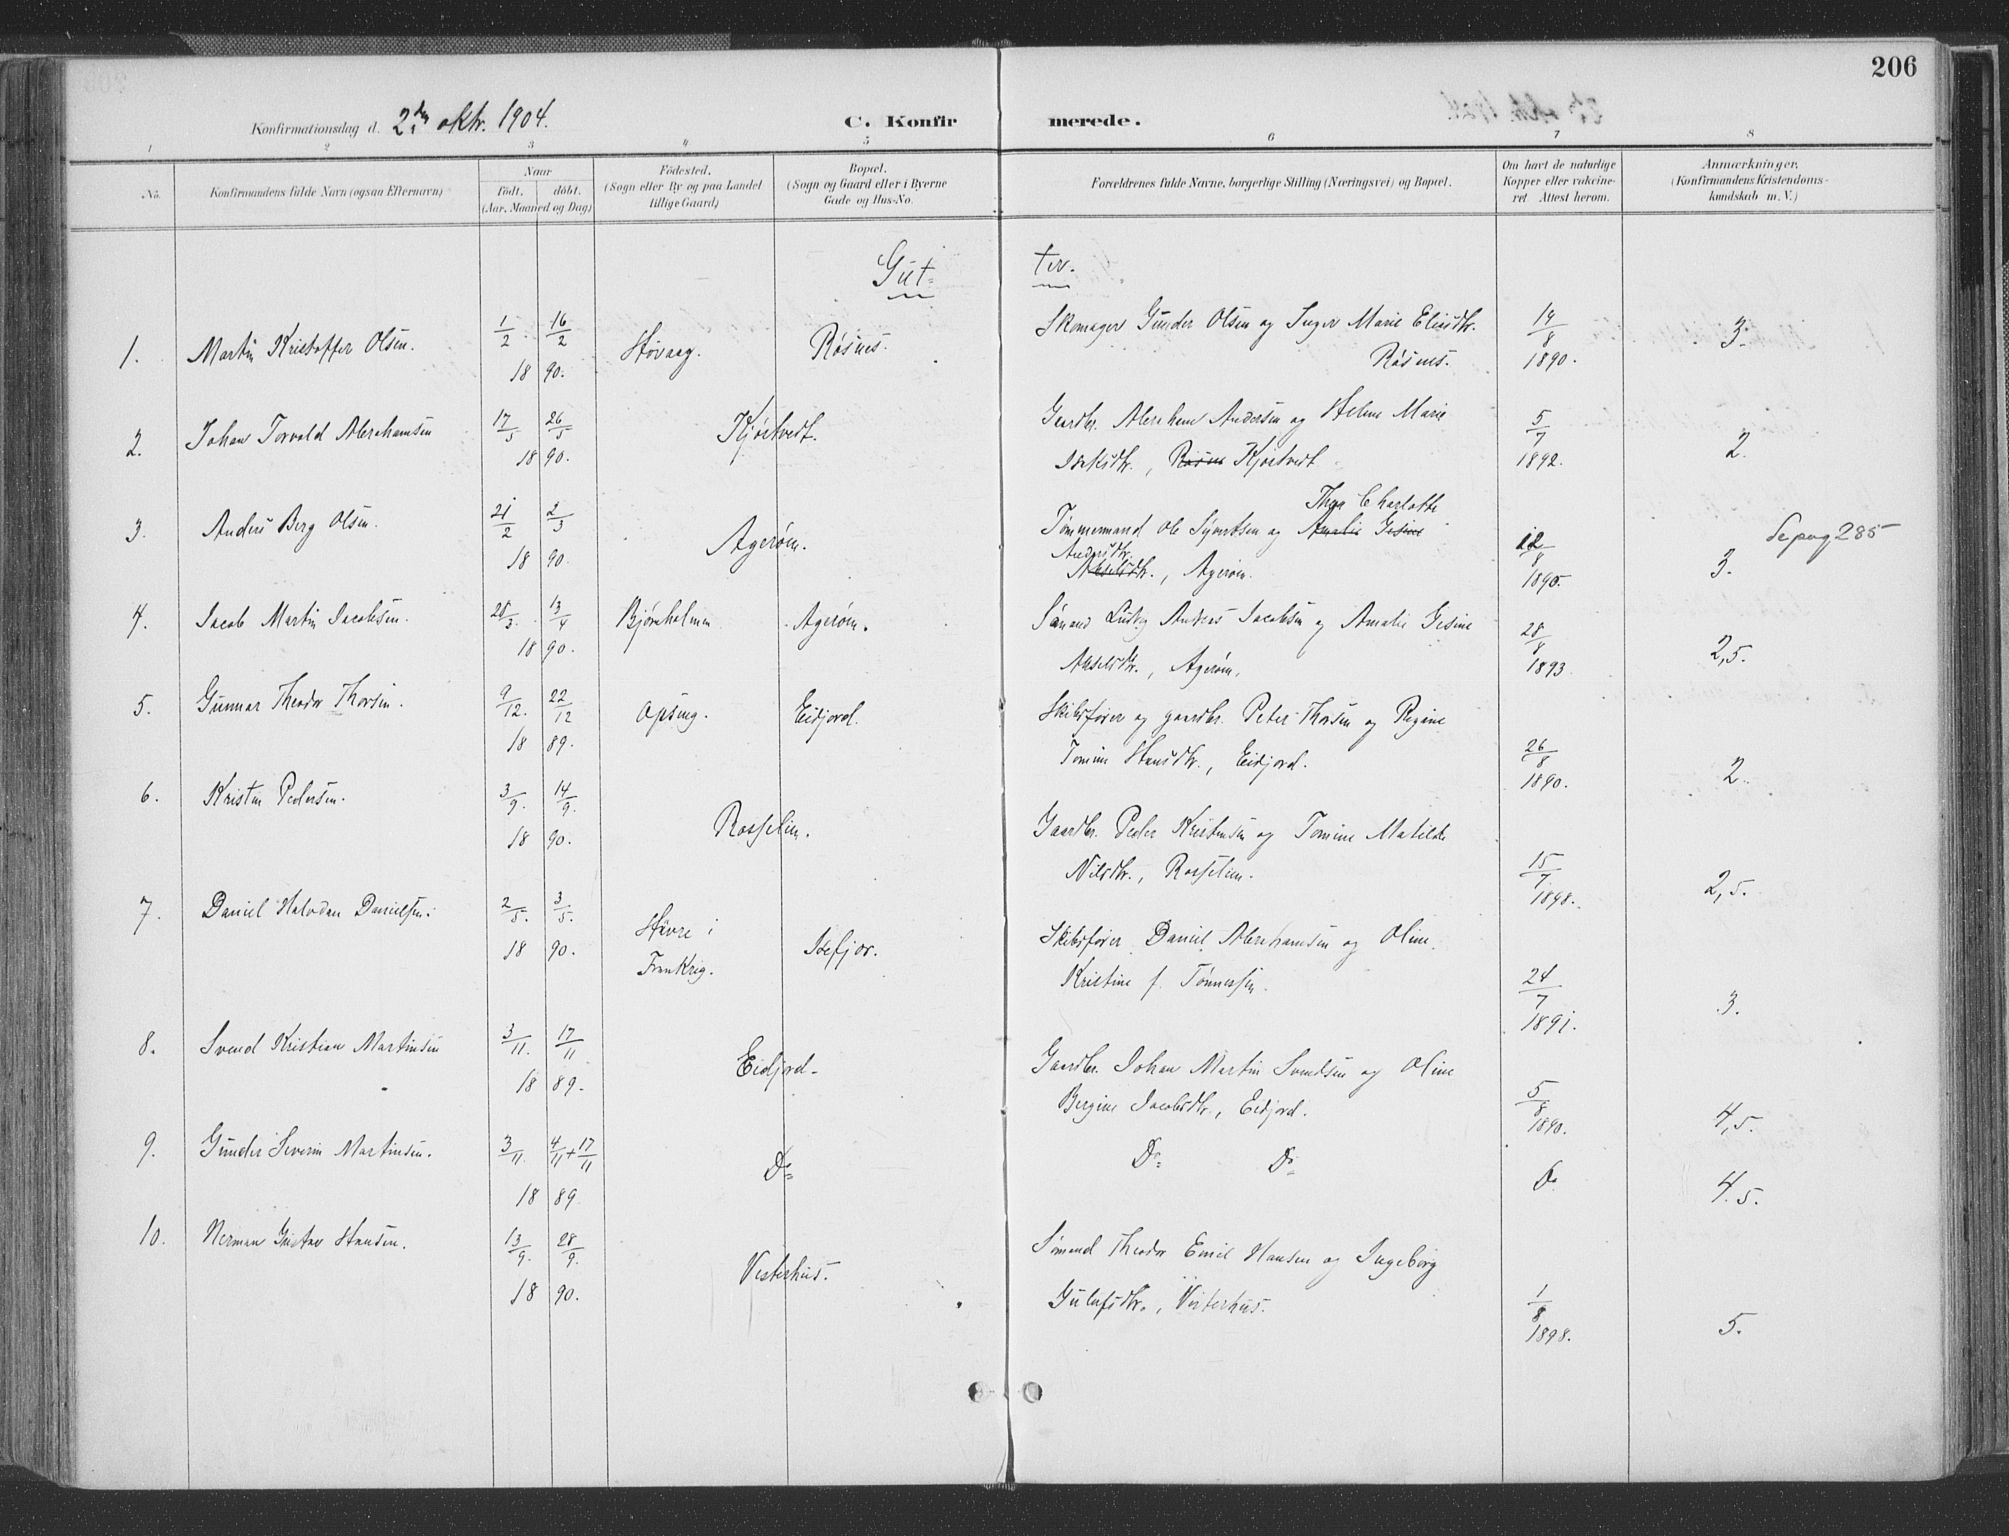 206
Konfirmationsdag d. 2den oktr. 1904.
C. Konfirmerede.
1 2 3 4 5 6 7 8
No.
Konfirmandens fulde Navn (ogsaa Efternavn)
Naar
født. døbt.
(Aar, Maaned og Dag)
Fødested.
(Sogn eller By og paa Landet
tillige Gaard)
Bopæl.
(Sogn og Gaard eller i Byerne
Gade og Hus-No.
Forældrenes fulde Navne, borgerlige Stilling (Næringsvei) og Bopæl.
Om havt de naturlige
Kopper eller vakcine-
ret Attest herom.
Anmærkninger.
(Konfirmandens Kristendoms-
kundskab m. V.)
Gut-
ter.
1. Martin Kristoffer Olsen. 1/2 16/2 1890. Høvaag. Røsnes.
Skomager Gunder Olsen og Inger Marie Eliasdtr.
Røsnes.
14/8 1890. 3.
2. Johan Torvald Abrahamsen 17/5 26/5 1890. Kjøstvedt.
Gaardbr. Abraham Andersen og Helene Marie
Isaksdtr., Røsnes Kjøstvedt
5/7 1892. 2.
3. Anders Berg Olsen. 21/2 2/3 1890. Agerøen.
Thea Charlotte
Tømmermand Ole Syvertsen og Amalie Gesine
Andersdtr.
Akselsdtr., Agerøen.
12/8 1890. 3.
Se pag 285
4. Jacob Martin Jacobsen. 28/3 13/4 1890. Bjørnholmen Agerøen.
Sømand Ludvig Andreas Jacobsen og Amalie Gesine
Akselsdtr., Agerøen.
28/8 1893. 2,5.
5. Gunnar Theodor Thorsen. 9/12. 22/12 1889. Opsang. Eidjord.
Skibsfører og gaardbr. Peter Thorsen og Regine
Tomine Hansdtr., Eidjord.
26/8 1890. 2.
6. Kristen Pedersen. 3/9. 14/9. 1890. Rosselien.
Gaardbr. Peder Kristensen og Tomine Matilde
Nilsdtr., Rosselien.
15/7 1898. 2,5.
7. Daniel Halvdan Danielsen. 2/5. 3/5. 1890. Hâvre i
Frankrig. Isefjær.
Skibsfører Daniel Abrahamsen og Oline
Kristine f. Tønnessen.
24/7 1891. 3.
8. Svend Kristian Martinsen 3/11. 17/11 1889. Eidjord.
Gaardbr. Johan Martin Svendsen og Oline
Bergine Jacobsdtr., Eidjord.
5/8 1890. 4,5.
9. Gunder Severin Martinsen. 3/11. 4/11+17/11 1889 Do
Do Do
Do 4.5.
10. Herman Gustav Hansen. 13/9. 28/9. 1890. Vesterhus.
Sømand Theodor Emil Hansen og Ingeborg
Gulufsdtr., Vesterhus.
1/8 1898. 5.